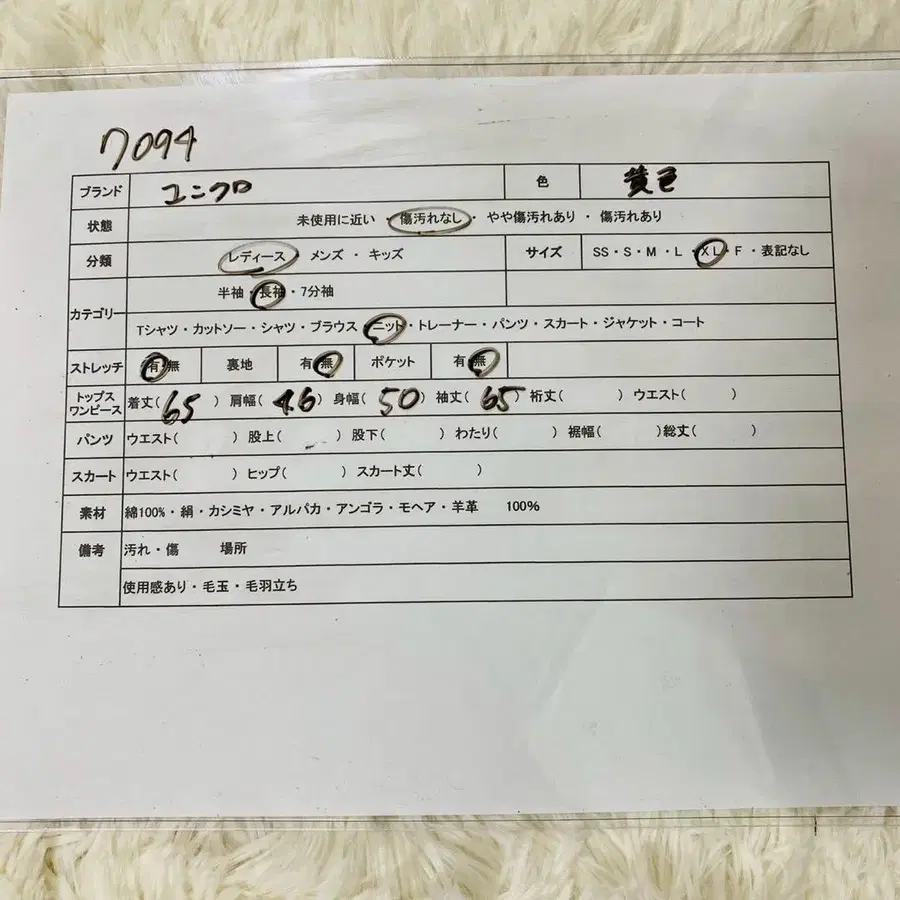 7094
ブランド ユニクロ 色 黄色
状態 未使用に近い ・ 傷汚れなし ・ やや傷汚れあり ・ 傷汚れあり
分類 レディース ・ メンズ ・ キッズ サイズ SS・S・M・L・XL・F・表記なし
カテゴリー 半袖・長袖・7分袖
Tシャツ・カットソー・シャツ・ブラウス・ニット・トレーナー・パンツ・スカート・ジャケット・コート
ストレッチ 有・無 裏地 有・無 ポケット 有・無
トップス
ワンピース 着丈(65) 肩幅(46) 身幅(50) 袖丈(65) 裄丈( ) ウエスト( )
パンツ ウエスト( ) 股上( ) 股下( ) わたり( ) 裾幅( ) 総丈( )
スカート ウエスト( ) ヒップ( ) スカート丈( )
素材 綿100%・絹・カシミヤ・アルパカ・アンゴラ・モヘア・羊革 100%
備考 汚れ・傷 場所
使用感あり・毛玉・毛羽立ち